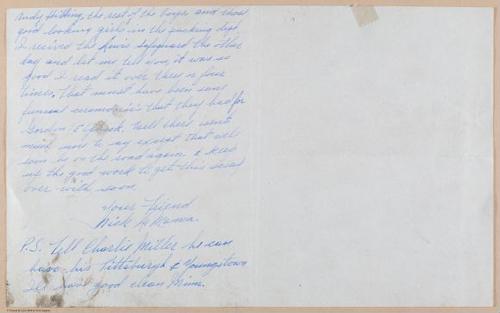 Andy Hilking, the rest of the boys and those
good looking girls in the packing dept.
I recived the Lewis Safeguard the other
day and let me tell you, it was so
good I read it over three or four
times. That must have been some
funeral ceremonies that they had for
Gordon. Well there isn't
much more to say except that we'll
soon be on the road again & keep
up the good work to get this
over with soon.
Your Friend
Nick
P.S. Tell Charlie Miller he can
have his Pittsburgh & Youngstown
good clean